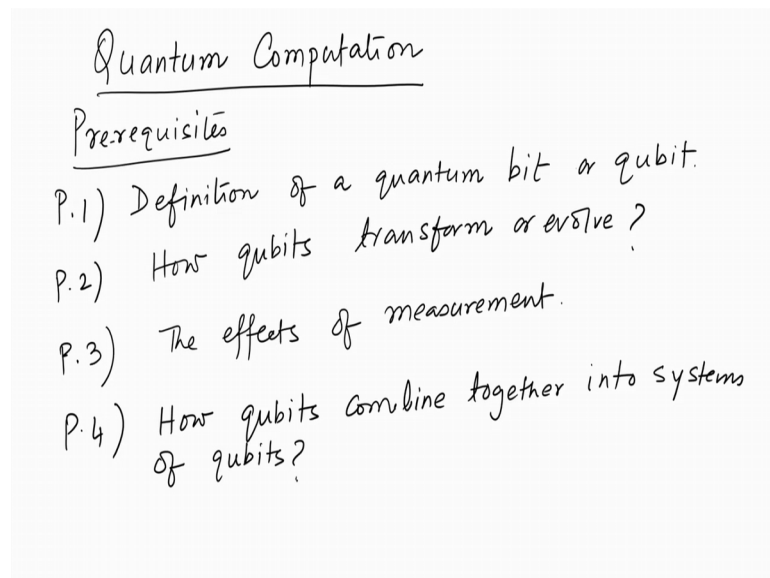 Quantum Computation
Prerequisites
P.1) Definition of a quantum bit or qubit.
P.2) How qubits transform or evolve?
P.3) The effects of measurement.
P.4) How qubits combine together into systems
of qubits?